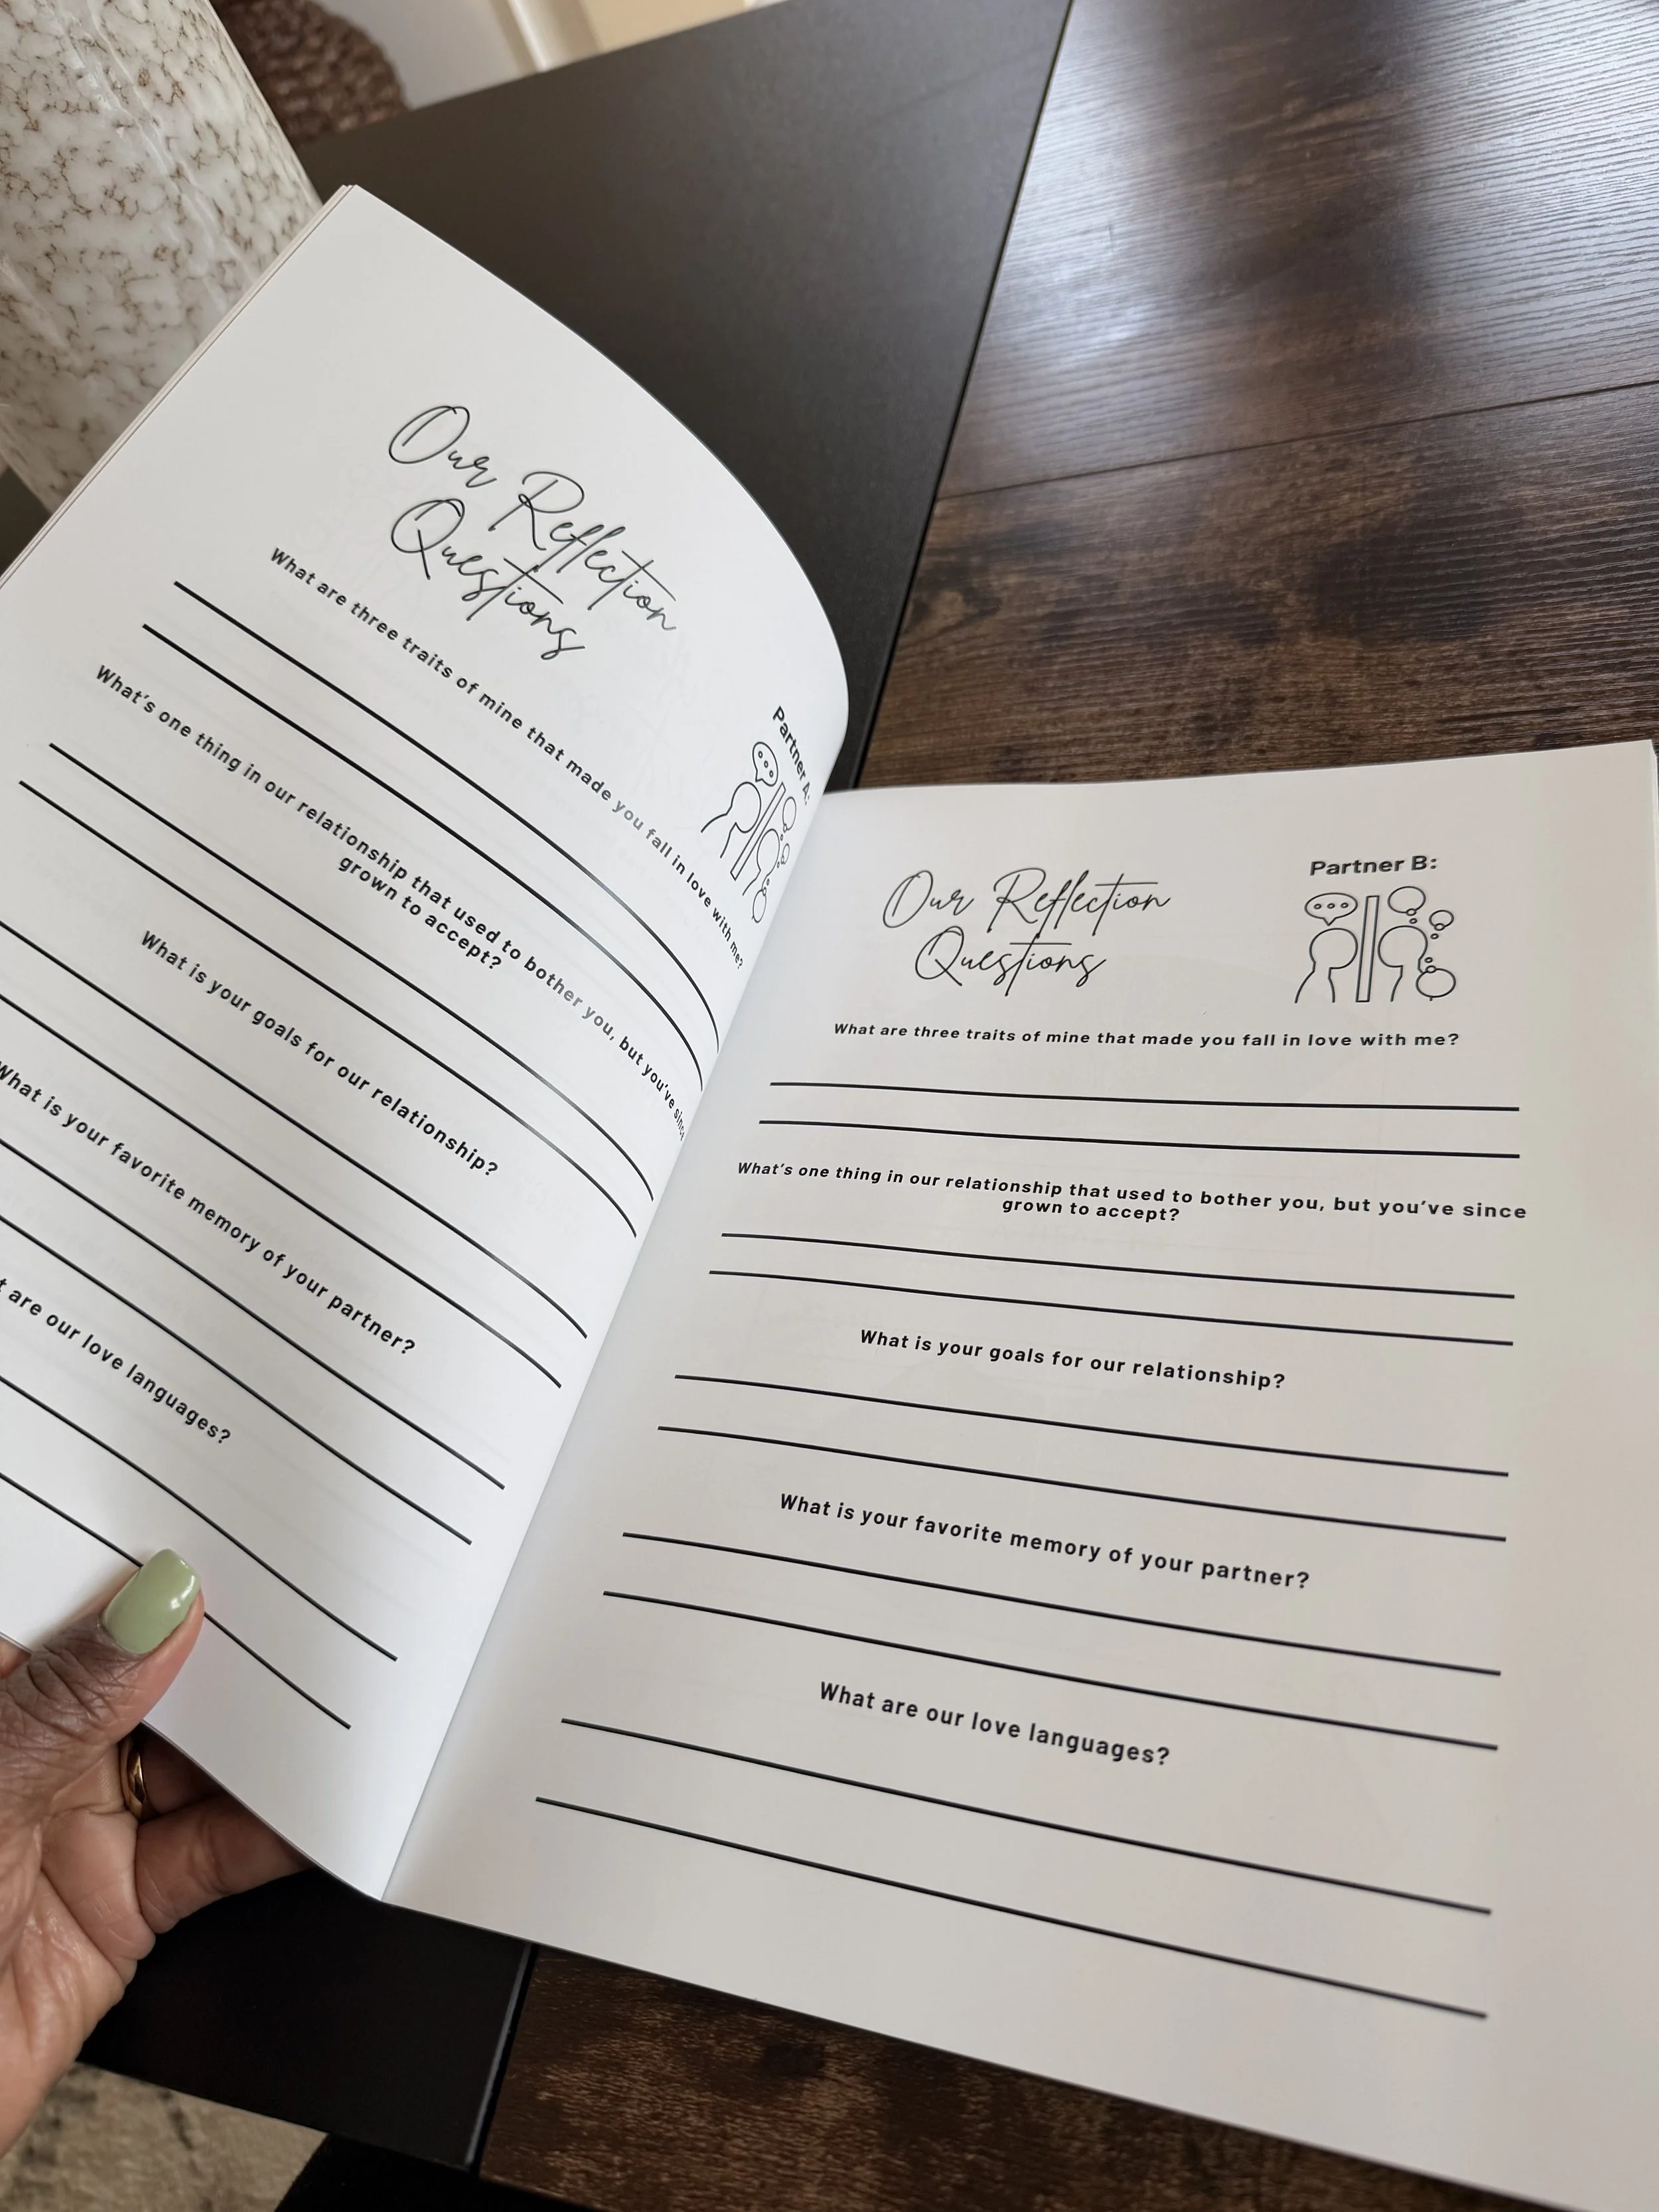 Our Reflection
Questions
Partner A:
What are three traits of mine that made you fall in love with me?
What's one thing in our relationship that used to bother you, but you've since
grown to accept?
What is your goals for our relationship?
What is your favorite memory of your partner?
are our love languages?
Our Reflection
Questions
Partner B:
What are three traits of mine that made you fall in love with me?
What's one thing in our relationship that used to bother you, but you've since
grown to accept?
What is your goals for our relationship?
What is your favorite memory of your partner?
What are our love languages?